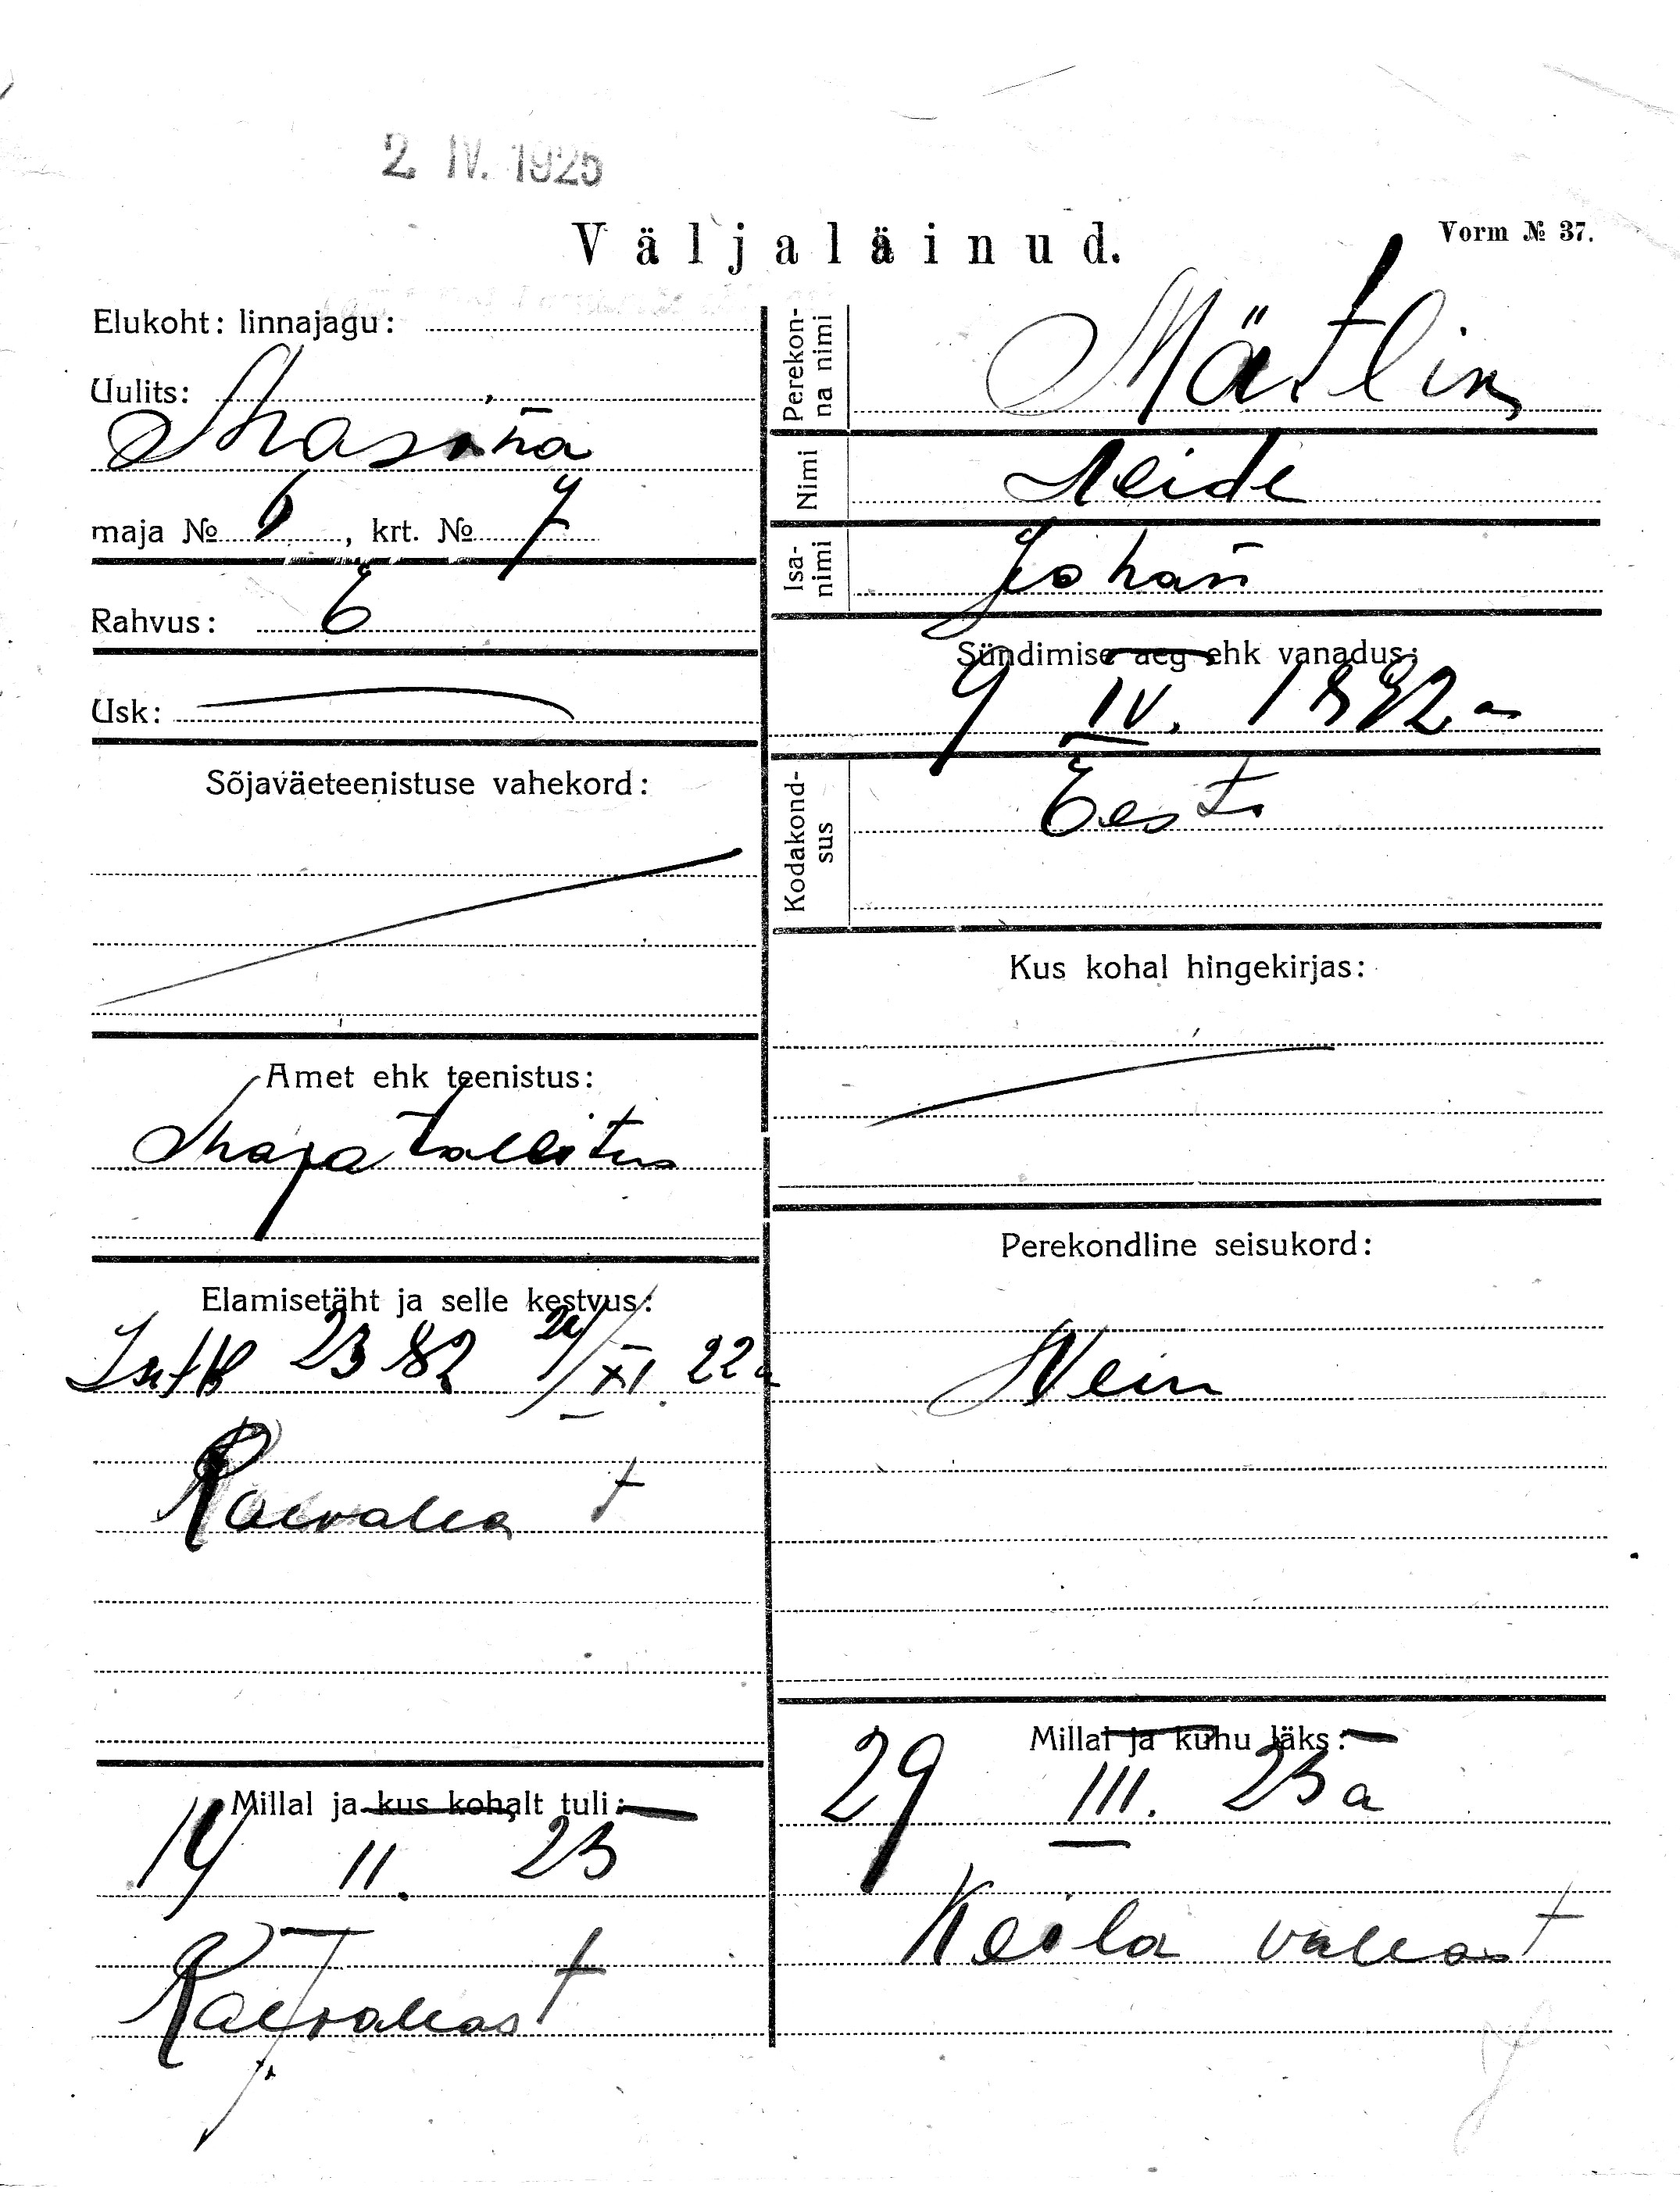 2 IV. 1925
Väljaläinud.
Vorm № 37.
Elukoht: linnajagu:
Uulits:
Masina
maja № 6, krt. № 7
Rahvus: E
Usk:
Sõjaväeteenistuse vahekord:
Amet ehk teenistus:
Majatallitus
Elamisetäht ja selle kestvus:
2382 XI. 22 a
Raevalla
Millal ja kus kohalt tuli:
14 II. 25
Raevallast
Perekonna nimi
Mätlik
Nimi
Leide
Isanimi
Johan
Sündimise aeg ehk vanadus:
9 IV. 1892 a
Kodakondsus
Eesti
Kus kohal hingekirjas:
Perekondline seisukord:
Nein
Millal ja kuhu läks:
29 III. 25 a
Keila vallast